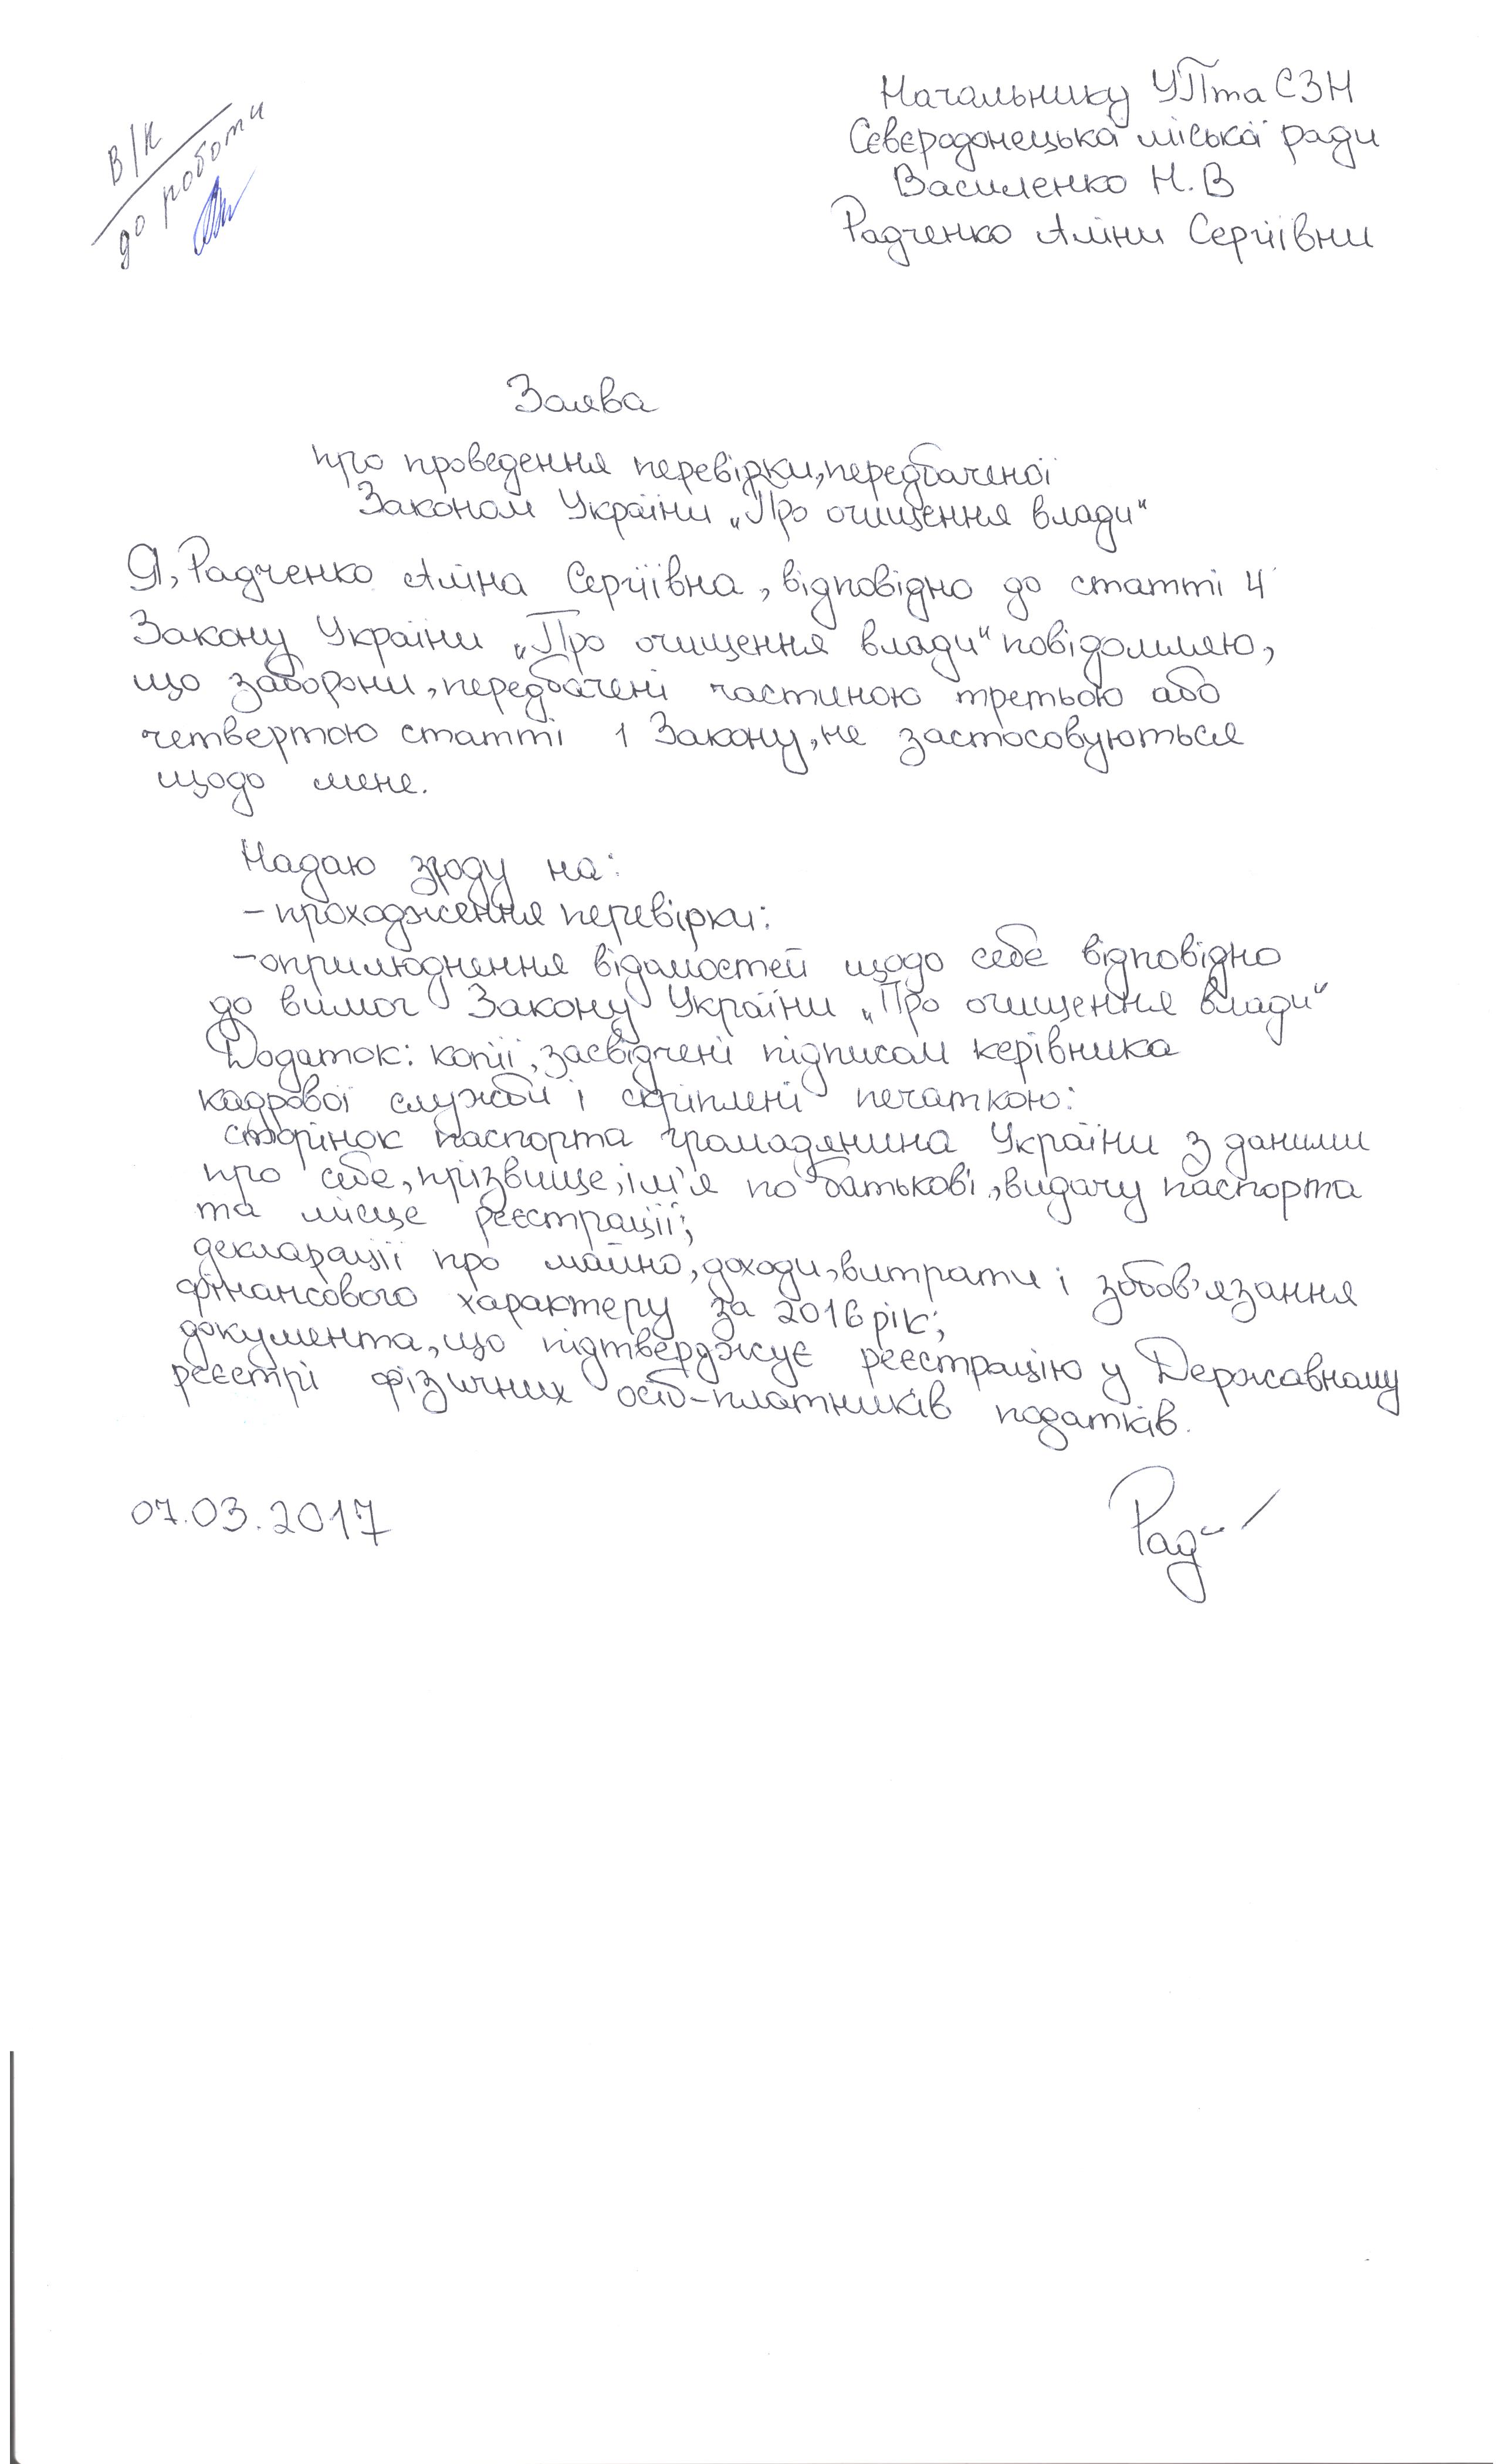 В/К
до роботи
Начальнику УПта СЗН
Сєвєродонецька міська ради
Василенко Н.В
Радченко Аліни Сергіївни
Заява
про проведення перевірки, передбаченої
Законом України „Про очищення влади"
Я, Радченко Аліна Сергіївна, відповідно до статті 4
Закону України „Про очищення влади" повідомляю,
що заборони, передбачені частиною третьою або
четвертою статті 1 Закону, не застосовуються
щодо мене.
Надаю згоду на:
- проходження перевірки:
- оприлюднення відомостей щодо себе відповідно
до вимог Закону України „Про очищення влади"
Додаток: копії, засвідчені підписом керівника
кадрової служби і скріплені печаткою:
сторінок паспорта громадянина України з даними
про себе, прізвище, ім'я по батькові, видачу паспорта
та місце реєстрації;
декларації про майно, доходи, витрати і зобов'язання
фінансового характеру за 2016 рік;
документа, що підтверджує реєстрацію у Державному
реєстрі фізичних осіб-платників податків.
07.03.2017
Рад